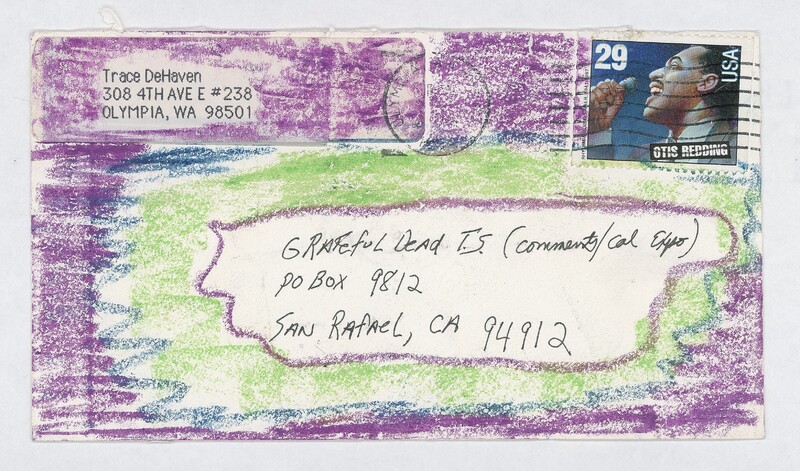 Trace DeHaven
308 4TH AVE E #238
OLYMPIA, WA 98501
29
USA
OTIS REDDING
GRATEFUL DEAD T.S. (comments/Cal Expo)
PO BOX 9812
SAN RAFAEL, CA 94912